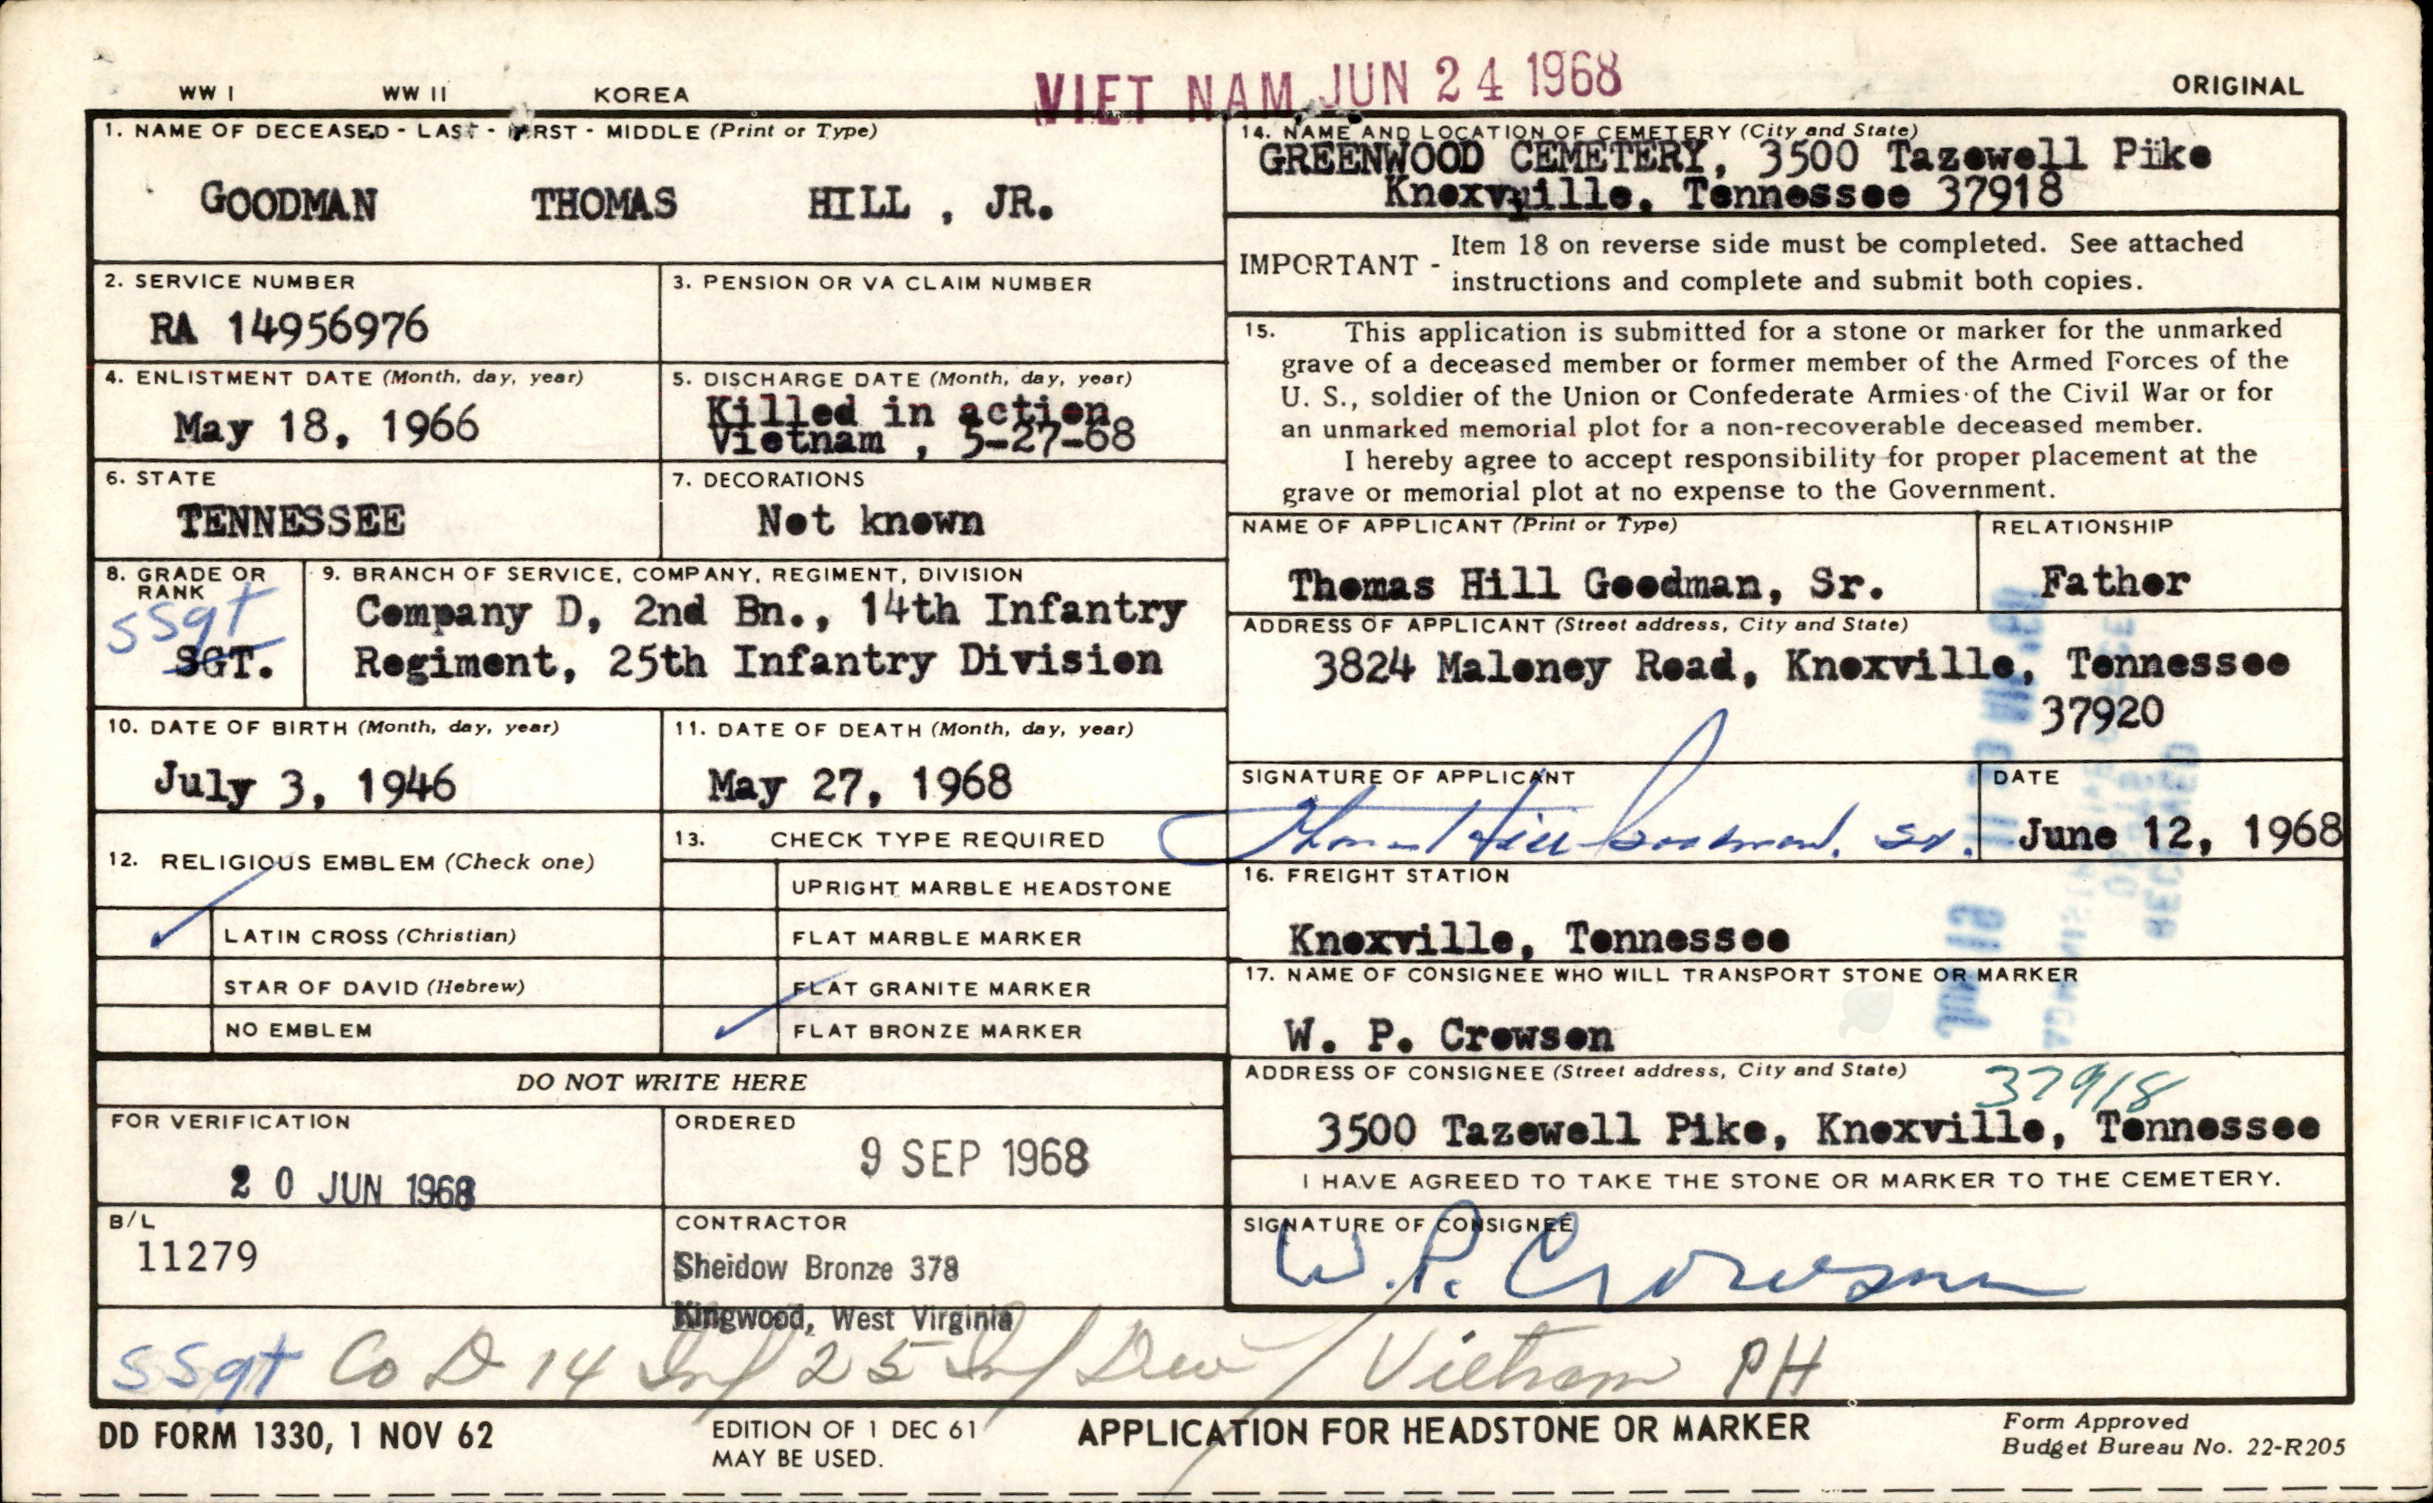 WW I WW II KOREA VIET NAM JUN 24 1968 ORIGINAL
1. NAME OF DECEASED - LAST - FIRST - MIDDLE (Print or Type)
GOODMAN THOMAS HILL , JR.
2. SERVICE NUMBER
RA 14956976
3. PENSION OR VA CLAIM NUMBER
4. ENLISTMENT DATE (Month, day, year)
May 18, 1966
5. DISCHARGE DATE (Month, day, year)
Killed in action
Vietnam , 5-27-68
6. STATE
TENNESSEE
7. DECORATIONS
Not known
8. GRADE OR
RANK
SSgt
SGT.
9. BRANCH OF SERVICE, COMPANY, REGIMENT, DIVISION
Company D, 2nd Bn., 14th Infantry
Regiment, 25th Infantry Division
10. DATE OF BIRTH (Month, day, year)
July 3, 1946
11. DATE OF DEATH (Month, day, year)
May 27, 1968
12. RELIGIOUS EMBLEM (Check one)
LATIN CROSS (Christian)
STAR OF DAVID (Hebrew)
NO EMBLEM
13. CHECK TYPE REQUIRED
UPRIGHT MARBLE HEADSTONE
FLAT MARBLE MARKER
FLAT GRANITE MARKER
FLAT BRONZE MARKER
DO NOT WRITE HERE
FOR VERIFICATION
20 JUN 1968
ORDERED
9 SEP 1968
B/L
11279
CONTRACTOR
Sheidow Bronze 378
Kingwood, West Virginia
14. NAME AND LOCATION OF CEMETERY (City and State)
GREENWOOD CEMETERY, 3500 Tazewell Pike
Knoxville, Tennessee 37918
IMPORTANT - Item 18 on reverse side must be completed. See attached
instructions and complete and submit both copies.
15. This application is submitted for a stone or marker for the unmarked
grave of a deceased member or former member of the Armed Forces of the
U. S., soldier of the Union or Confederate Armies of the Civil War or for
an unmarked memorial plot for a non-recoverable deceased member.
I hereby agree to accept responsibility for proper placement at the
grave or memorial plot at no expense to the Government.
NAME OF APPLICANT (Print or Type)
Thomas Hill Goodman, Sr.
RELATIONSHIP
Father
ADDRESS OF APPLICANT (Street address, City and State)
3824 Maloney Road, Knoxville, Tennessee
37920
SIGNATURE OF APPLICANT
Thomas Hill Goodman, Sr.
DATE
June 12, 1968
16. FREIGHT STATION
Knoxville, Tennessee
17. NAME OF CONSIGNEE WHO WILL TRANSPORT STONE OR MARKER
W. P. Crowson
ADDRESS OF CONSIGNEE (Street address, City and State)
37918
3500 Tazewell Pike, Knoxville, Tennessee
I HAVE AGREED TO TAKE THE STONE OR MARKER TO THE CEMETERY.
SIGNATURE OF CONSIGNEE
W. P. Crowson
SSgt Co D 14 Inf 25 Inf Div / Vietnam PH
DD FORM 1330, 1 NOV 62
EDITION OF 1 DEC 61
MAY BE USED.
APPLICATION FOR HEADSTONE OR MARKER
Form Approved
Budget Bureau No. 22-R205